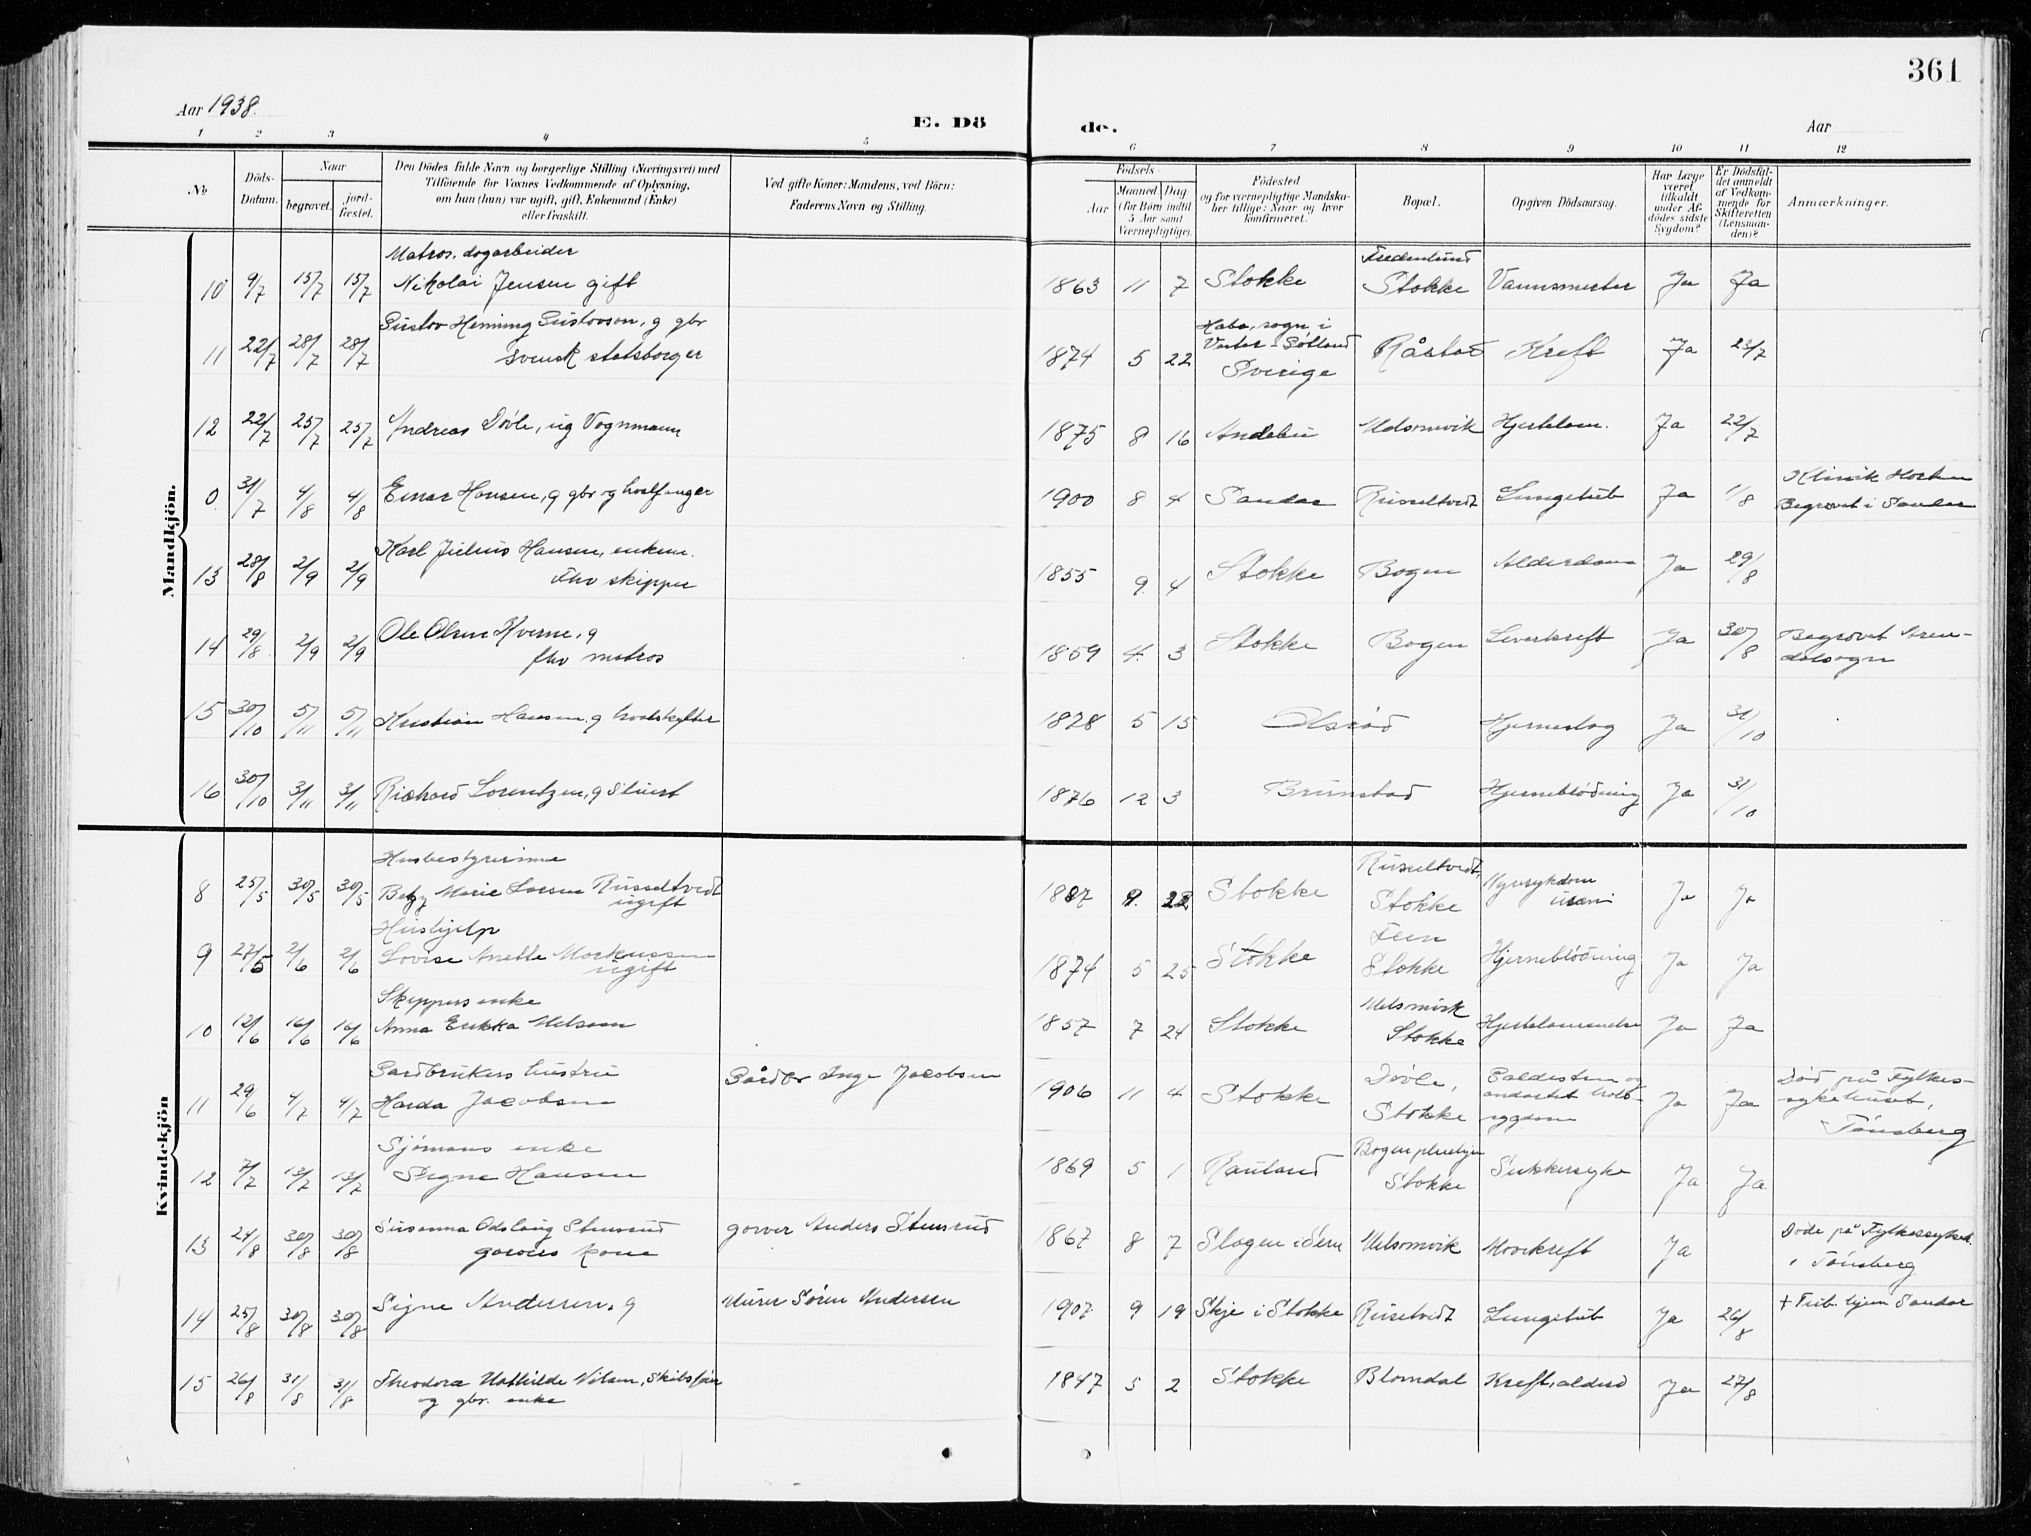 361
Aar 1938.
E. Dö
de.
Aar
1 2 3 4 5 6 7 8 9 10 11 12
No.
Döds-Datum.
Naar
begravet.
jordfæstet.
Den Dödes fulde Navn og borgerlige Stilling (Næringsvei) med
Tilföiende for Voxnes Vedkommende af Oplysning,
om han (hun) var ugift, gift, Enkemand (Enke)
eller fraskilt.
Ved gifte Koner: Mandens, ved Börn:
Faderens Navn og Stilling.
Födsels-
Aar
Maaned Dag
(for Börn indtil
5 Aar samt
Værnepligtige).
Födested
og for værnepligtige Mandska-
ber tillige: Naar og hvor
konfirmeret.
Bopæl.
Opgiven Dödsaarsag.
Har Læge
været
tilkaldt
under Af-
dödes sidste
Sygdom?
Er Dödsfal-
det anmeldt
af Vedkom-
mende for
Skifteretten
(Lensman-
den)?
Anmærkninger.
Mandkjön.
Matros, dogarbeider Fredenlund
10 9/7 15/7 15/7 Nikolai Jensen gift 1863 11 7 Stokke Stokke Ja Ja
Gustav Henning Gustavson, g gbr Habo, sogn i
11 22/7 28/7 28/7 svensk statsborger 1874 5 22 Vester-Götland Sverige Råstad Kreft Ja 23/7
12 22/7 25/7 25/7 Andreas Døvle, ug Vognmann 1875 8 16 Andebu Melsomvik Hjertelam. Ja 22/7
0 31/7 4/8 4/8 Einar Hansen, g gbr og hvalfanger 1900 8 4 Sandar Russeltvedt Lungetub Ja 1/8 Klinik
Begravet i Sandar
Karl Julius Hansen, enkem.
13 28/8 2/9 2/9 Fhv skipper 1855 9 4 Stokke Bogen Alderdom Ja 29/8
Ole Olsen Kverne, g
14 29/8 2/9 2/9 fhv matros 1859 4 3 Stokke Bogen Leverkreft Ja 30/8 Begravet Aren-
dalsogn
15 30/10 5/11 5/11 Kristian Hansen, g hvalskytter 1878 5 15 Olsrød Hjerneslag Ja 31/10
16 30/10 3/11 3/11 Richard Lorentzen, g Stuert 1876 12 3 Brunstad Hjerneblødning Ja 31/10
Kvindekjön
Husbestyrerinne Russeltvedt,
8 25/5 30/5 30/5 Betzy Marie Larsen Russeltvedt ugift 1887 9 22 Stokke Stokke Nyresykdom uræmi Ja Ja
Hushjelp Feen
9 27/5 2/6 2/6 Lovise Anette Markussen ugift 1874 5 25 Stokke Stokke Hjerneblødning Ja Ja
Skippers enke Melsomvik
10 12/6 16/6 16/6 Anna Erikka Melsom 1857 7 24 Stokke Stokke Hjertelammelse Ja Ja
Gardbrukers hustru
11 29/6 4/7 4/7 Harda Jacobsen Gårdbr Inge Jacobsen 1906 11 4 Stokke Døvle, Stokke Galdesten og Ja Ja Død på Fylkes-
sykehuset,
Tønsberg
Sjømans enke Bogen pleiehjem
12 7/7 13/7 13/7 Signe Hansen 1869 5 1 Rauland Stokke Sukkersyke Ja Ja
13 24/8 30/8 30/8 Susanna Odslaug Stensrud garvers kone garver Anders Stensrud 1867 8 7 Slagen i Sem Melsomvik Mavekreft Ja Døde på Fylkessykeh.
i Tønsberg
14 25/8 30/8 30/8 Signe Andersen, g Murer Søren Andersen 1907 9 19 Skje i Stokke Ruseltvedt Lungetub Ja 26/8 + Tub. hjem Sandar
15 26/8 31/8 31/8 Theodora Mathilde Nilsen, Skibsfører
og gbr. enke 1847 5 2 Stokke Blomdal Kreft, alderd Ja 27/8